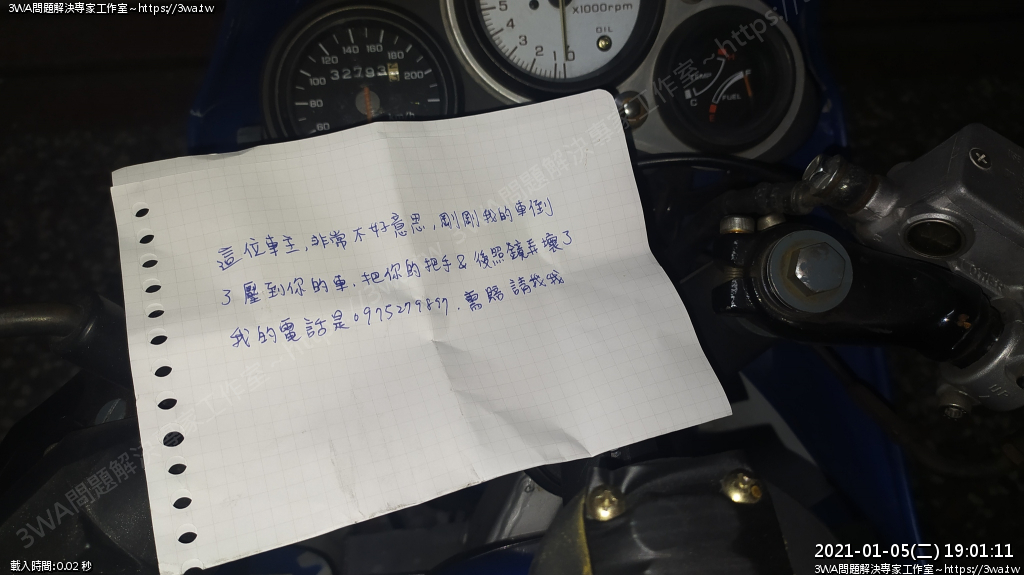 3WA問題解決專家工作室~https://3wa.tw
x1000rpm
OIL
5
2
1
0
120
140
160
180
100
200
80
60
32793
TEMP
C
FUEL
這位車主,非常不好意思,剛剛我的車倒
了壓到你的車,把你的把手&後照鏡弄壞了
我的電話是0975279897.需賠請找我
3WA問題解決專家工作室~https://3wa.tw
載入時間:0.02 秒
2021-01-05(二) 19:01:11
3WA問題解決專家工作室~https://3wa.tw